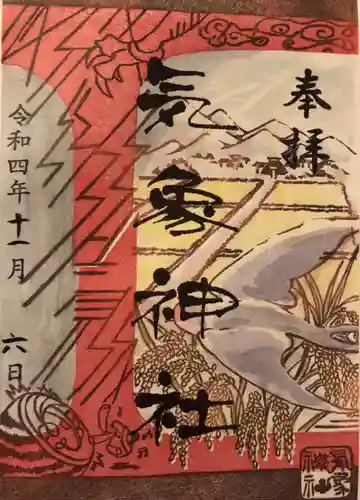 奉拝
気象神社
令和四年十一月 六日
気象
神社